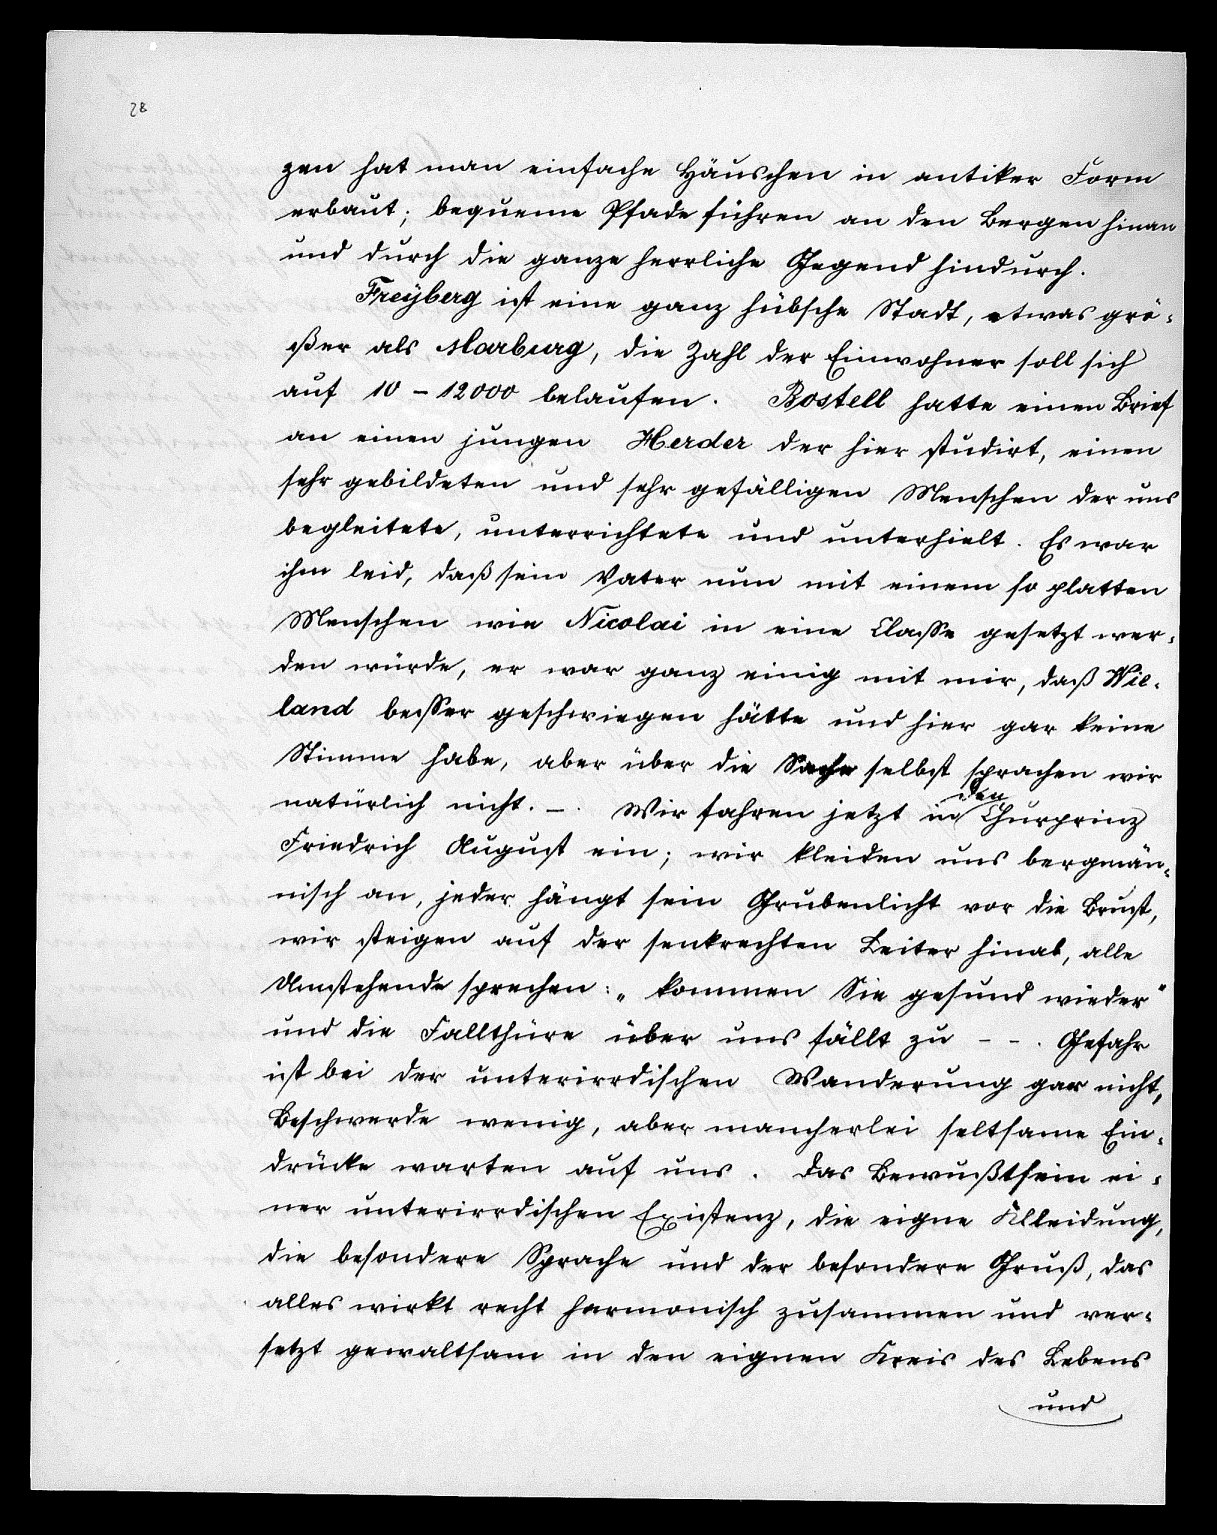 28
zen hat man einfache Häuschen in antiker Form
erbaut; bequeme Pfade führen an den Bergen hinan
und durch die ganze herrliche Gegend hindurch.
Freÿberg ist eine ganz hübsche Stadt, etwas grö-
ßer als Marburg, die Zahl der Einwohner soll sich
auf 10 - 12000 belaufen. Bostell hatte einen Brief
an einen jungen Herder der hier studirt, einen
sehr gebildeten und sehr gefälligen Menschen der uns
begleitete, unterrichtete und unterhielt. Es war
ihm leid, daß sein Vater nun mit einem so platten
Menschen wie Nicolai in eine Classe gesetzt wer-
den würde, er war ganz einig mit mir, daß Wie-
land besser geschwiegen hätte und hier gar keine
Stimme habe, aber über die Sache selbst sprachen wir
natürlich nicht. -. Wir fahren jetzt in den Churprinz
Friedrich August ein; wir kleiden uns bergmän-
nisch an, jeder hängt sein Grubenlicht vor die Brust,
wir steigen auf der senkrechten Leiter hinab, alle
Umstehende sprechen: „kommen Sie gesund wieder"
und die Fallthüre über uns fällt zu - -. Gefahr
ist bei der unterirrdischen Wanderung gar nicht,
Beschwerde wenig, aber mancherlei seltsame Ein-
drücke warten auf uns. Das Bewußtsein ei-
ner unterirrdischen Existenz, die eigne Kleidung,
die besondere Sprache und der besondere Gruß, das
alles wirkt recht harmonisch zusammen und ver-
setzt gewaltsam in den eignen Kreis des Lebens
und